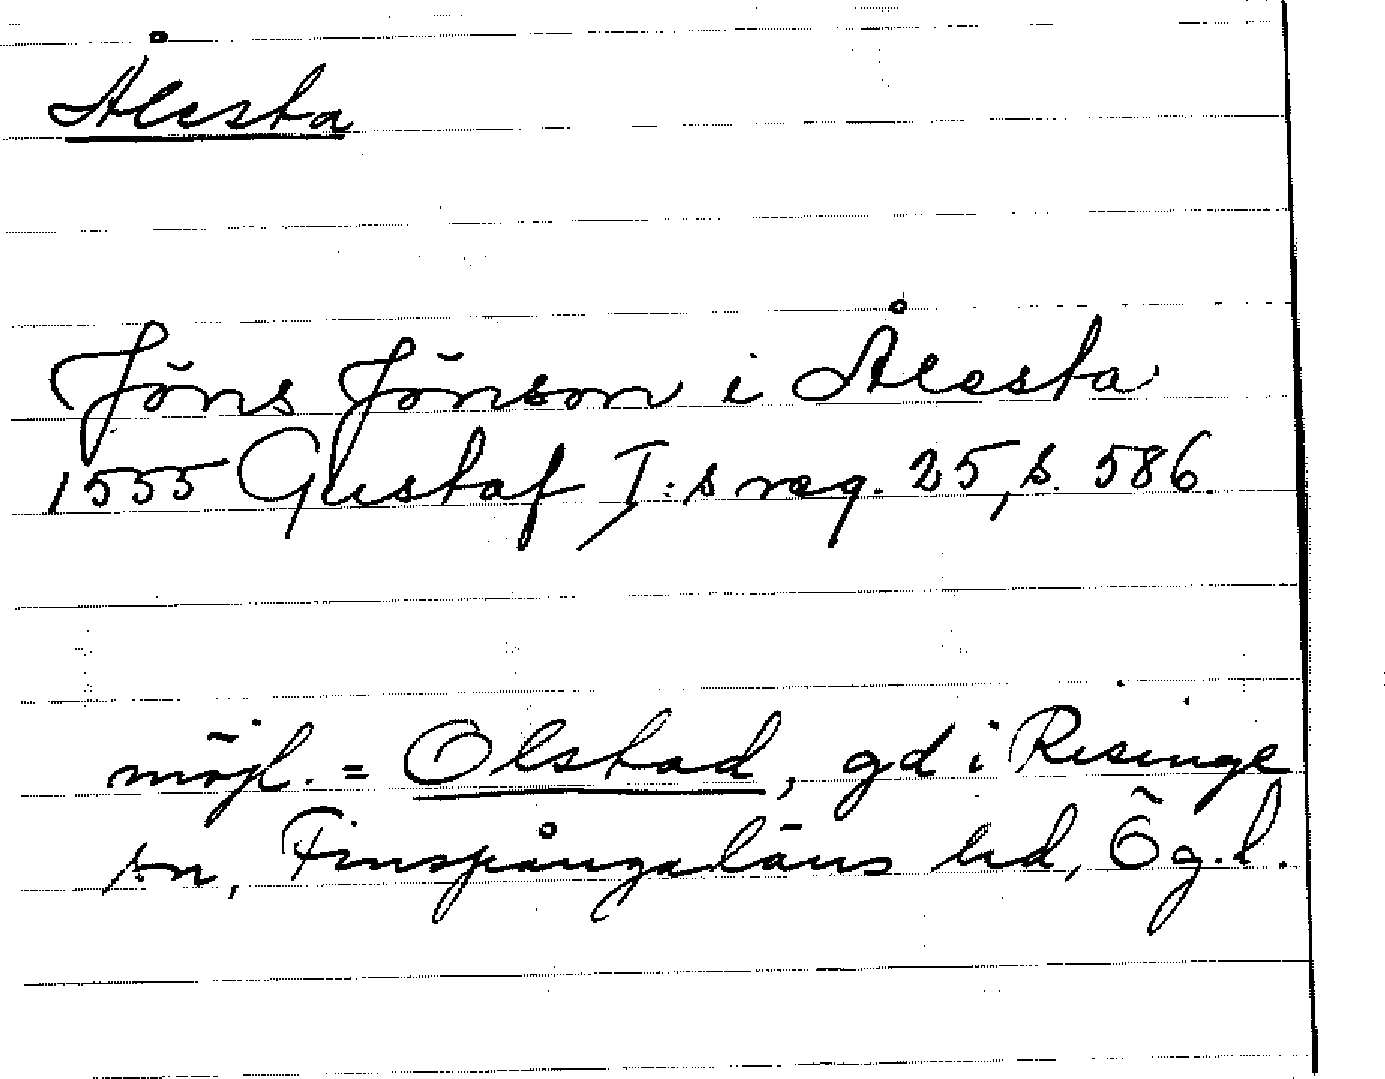 Ålesta
Jöns Jönson i Ålesta
1555 Gustaf I:s reg. 25, s. 586
möjl. = Olstad, gd i Risinge
sn, Finspångaläns hd, Ög.l.